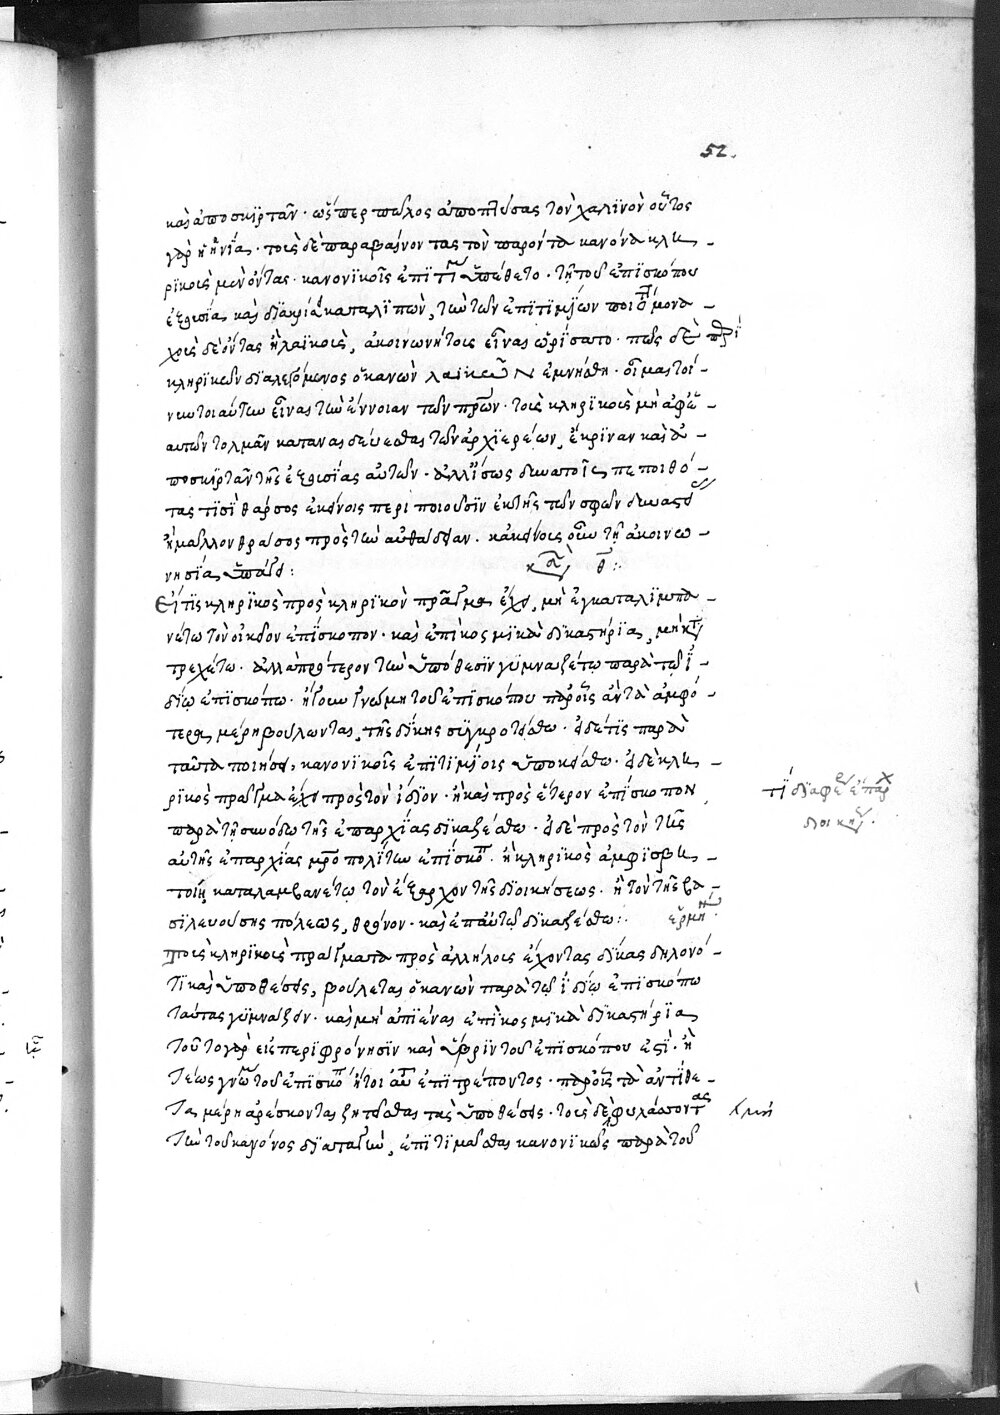 52.
καὶ ἀποσκιρτᾶν· ὥσπερ πῶλος ἀποπτύσας τὸν χαλινὸν οὗτος
γὰρ ἡ ἡνία· τοὺς δὲ παραβαίνοντας τὸν παρόντα κανόνα κλη-
ρϊκοὺς μὲν ὄντας· κανονϊκοῖς ἐπιτιμίοις ὑπέθετο· τῆ τοῦ ἐπισκόπου
ἐξουσία καὶ διακρίσει καταλιπὼν, τὼ τῶν ἐπιτιμίων ποιότητα μονα-
χοὺς δὲ ὄντας ἢ λαϊκοὺς, ἀκοινωνήτους εἶναι ὡρίσατο· πῶς δὲ περὶ
κληρϊκῶν διαλεγόμενος ὁ κανὼν λαϊκῶν ἐμνήσθη· οἶμαι τοί-
νυν τοιαύτην εἶναι τὴν ἔννοιαν τῶν πρων· τοὺς κληρϊκοὺς μὴ ἀφ' ἑ-
αυτῶν τολμᾶν κατανασεύεσθαι τῶν ἀρχϊερέων, ἔκριναν καὶ ἀ-
ποσκιρτᾶν τῆς ἐξουσίας αὐτῶν· ἀλλ' ἴσως δυνατοῖς πεποιθό-
τας τισὶ θάρσος ἐκείνοις περιποιοῦσιν ἐκ τῆς τῶν σφῶν δυναστεί
ἢ μᾶλλον θράσος πρὸς τὼ αὐθάδειαν. κἀκείνους οὖν τῆ ἀκοινω-
νησία ὑπάγει:
κα θ:
Εἴ τις κληρϊκὸς πρὸς κληρϊκὸν πρᾶγμα ἔχει, μὴ ἐγκαταλιμπα-
νέτω τὸν οἰκεῖον ἐπίσκοπον· καὶ ἐπὶ κοσμϊκὰ δικαστήρια, μὴ κα
τρεχέτω· ἀλλὰ πρότερον τὼ ὑπόθεσιν γυμναζέτω παρὰ τῷ ἰ-
δίῳ ἐπισκόπω· ἤγουν γνώμη τοῦ ἐπισκόπου παρ' οἷς ἂν τὰ ἀμφό-
τερα μέρη βούλωνται, τῆς δίκης συγκροτείσθω· εἰ δέ τις παρὰ
ταῦτα ποιήσει, κανονϊκοῖς ἐπιτιμίοις ὑποκείσθω· εἰ δὲ κλη-
ρϊκὸς πρᾶγμα ἔχει πρὸς τὸν ἴδιον· ἢ καὶ πρὸς ἕτερον ἐπίσκοπον
τί διαφέρει ἐπαρχ
διοικήσ.
παρὰ τῆ συνόδω τῆς ἐπαρχίας δικαζέσθω· εἰ δὲ πρὸς τὸν τῆς
αὐτῆς ἐπαρχίας μροπολίτην ἐπίσκοπ· ἢ κληρϊκὸς ἀμφισβη-
τοίη καταλαμβανέτω τὸν ἔξαρχον τῆς διοικήσεως· ἢ τὸν τῆς βα-
σιλευούσης πόλεως, θρόνον· καὶ ἐπ' αὐτῷ δικαζέσθω:· ἑρμη
τοὺς κληρϊκοὺς πράγματα πρὸς ἀλλήλους ἔχοντας δίκας δηλονό-
τι καὶ ὑποθέσεις, βούλεται ὁ κανὼν παρὰ τῷ ἰδίῳ ἐπισκόπω
ταύτας γυμνάζειν· καὶ μὴ ἀπιέναι ἐπὶ κοσμϊκὰ δικαστήρια
τοῦτο γὰρ εἰς περιφρόνησιν καὶ ὕβριν τοῦ ἐπισκόπου ἐστί· ἢ
τέως γνώμ τοῦ ἐπισκόπ ἤτοι αὐτ ἐπιτρέποντος· παρ' οἷς τὰ ἀντίθε-
τα μέρη ἀρέσκονται ζητεῖσθαι τὰς ὑποθέσεις· τοὺς δὲ φυλάσσοντας
τὼ τοῦ κανόνος διαταγὼ, ἐπιτιμᾶσθαι κανονϊκῶς παρὰ τοῦ